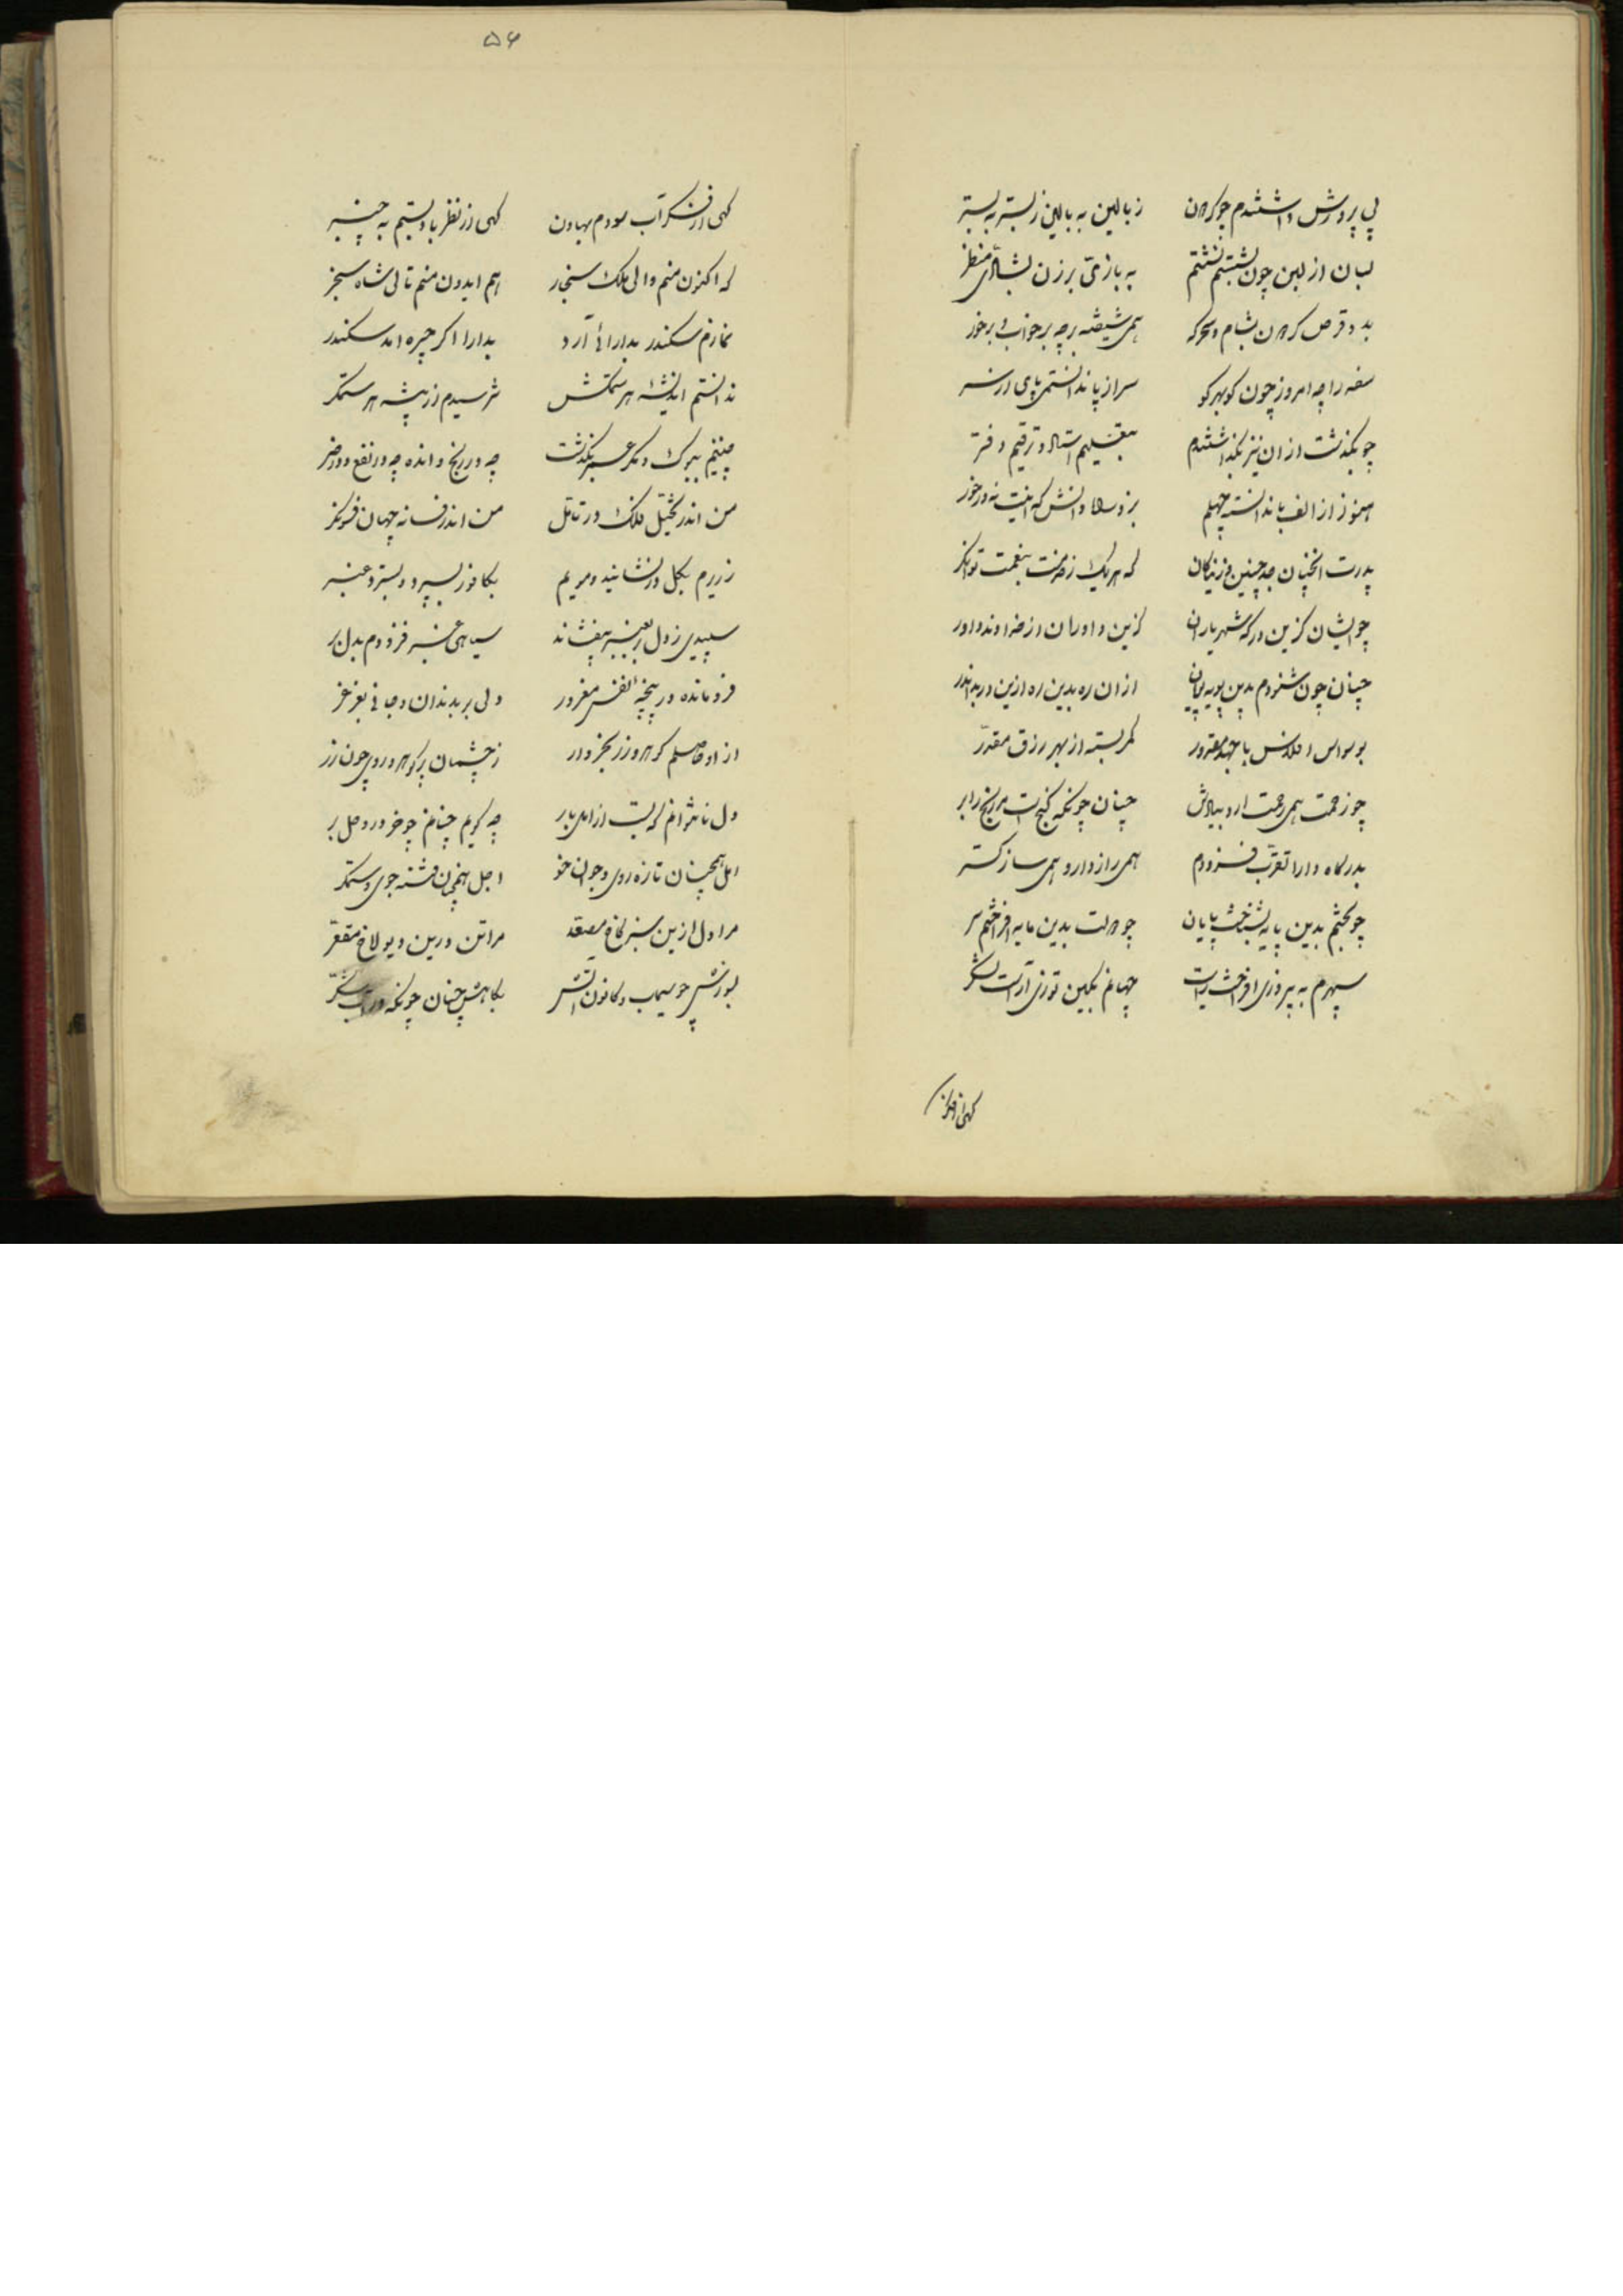 پی پرورش داشتندم چو کردن    ز بالین به بالین ز بستر به بستر
لبان از لبن چون بشستم نشستم    به بازی بر زن بشادی منظر
بد و قرص کردن بشام و سحرکه    همی شیفته برچه برخواب و برخور
سفه را چه امروز چون کوبهرکو    سر از پا ندانستمی پای از سر
چو بگذشت ازان نیز بگذاشتندم    بتعلیم استاد و ترقیم دفتر
هنوز از الف با ندانسته جهلم    بزد دانش که اینت نه درخور
پدرت انچنان جد چنین و نیاکان    که هر یک ز حرفت بنعمت توانکر
چو ایشان کزین درکه شهریاران    کزین داوران از خداوند داور
چنان چون شنودم بدین پویه پویان    ازان ره بدین ره ازین در بدان در
بوسواس افلاس با جهد مقدور    کمر بسته از بهر رزق مقدر
چو زحمت همی رحمت ارد ببادش    چنان چونکه کنج است مر رنج را بر
بدرکاه دارا تقرب فزودم    همی راز دار و همی ساز کستر
چو بختم بدین پایه بخشید پایان    چو دولت بدین مایه افراختم سر
سپهرم به پیروزی افراخت رایت    جهانم بکین توزی آراست لشکر
کهی از فکر
۵۶
کهی از فکر آب سودم بهاون    کهی از نظر باد بستم به چنبر
که اکنون منم والی ملک سنجار    هم ایدون منم تالی شاه سنجر
نمازم سکندر بدارائی آرد    بدارا اکر چیره امد سکندر
ندانستم اندیشه هر ستمکش    نترسیدم از پیشه هر ستمکر
چنینم ببوک و مکر عمر بگذشت    چه در رنج و انده چه در نفع و در ضر
من اندر تخیل فلک در تامل    من اندر فسانه جهان فسونکر
زریرم بکل درنشانید و مریم    بکافور بسپرد و بسترد عنبر
سپیدی ز دل بعنبر بیفشاند    سیاهی عنبر فزودم بدل بر
فرومانده در پنجه نفس مغرور    ولی بر بدندان و جانی بغرغر
ازاو حاصلم کوهر و زر بخروار    ز چشمان پر کوهر و روی چون زر
دل ناتوانم که بست از امل بار    چه کویم چنانم چو خر در وحل بر
امل همچنان تازه روی و جوان خو    اجل همچنان فتنه جوی و ستمکر
مرا دل ازین سبز کاخ مصقد    مرا تن درین دیولاخ مقعر
بسوزش چو سیماب و کانون اتش    بکاهش چنان چونکه در آب شکر